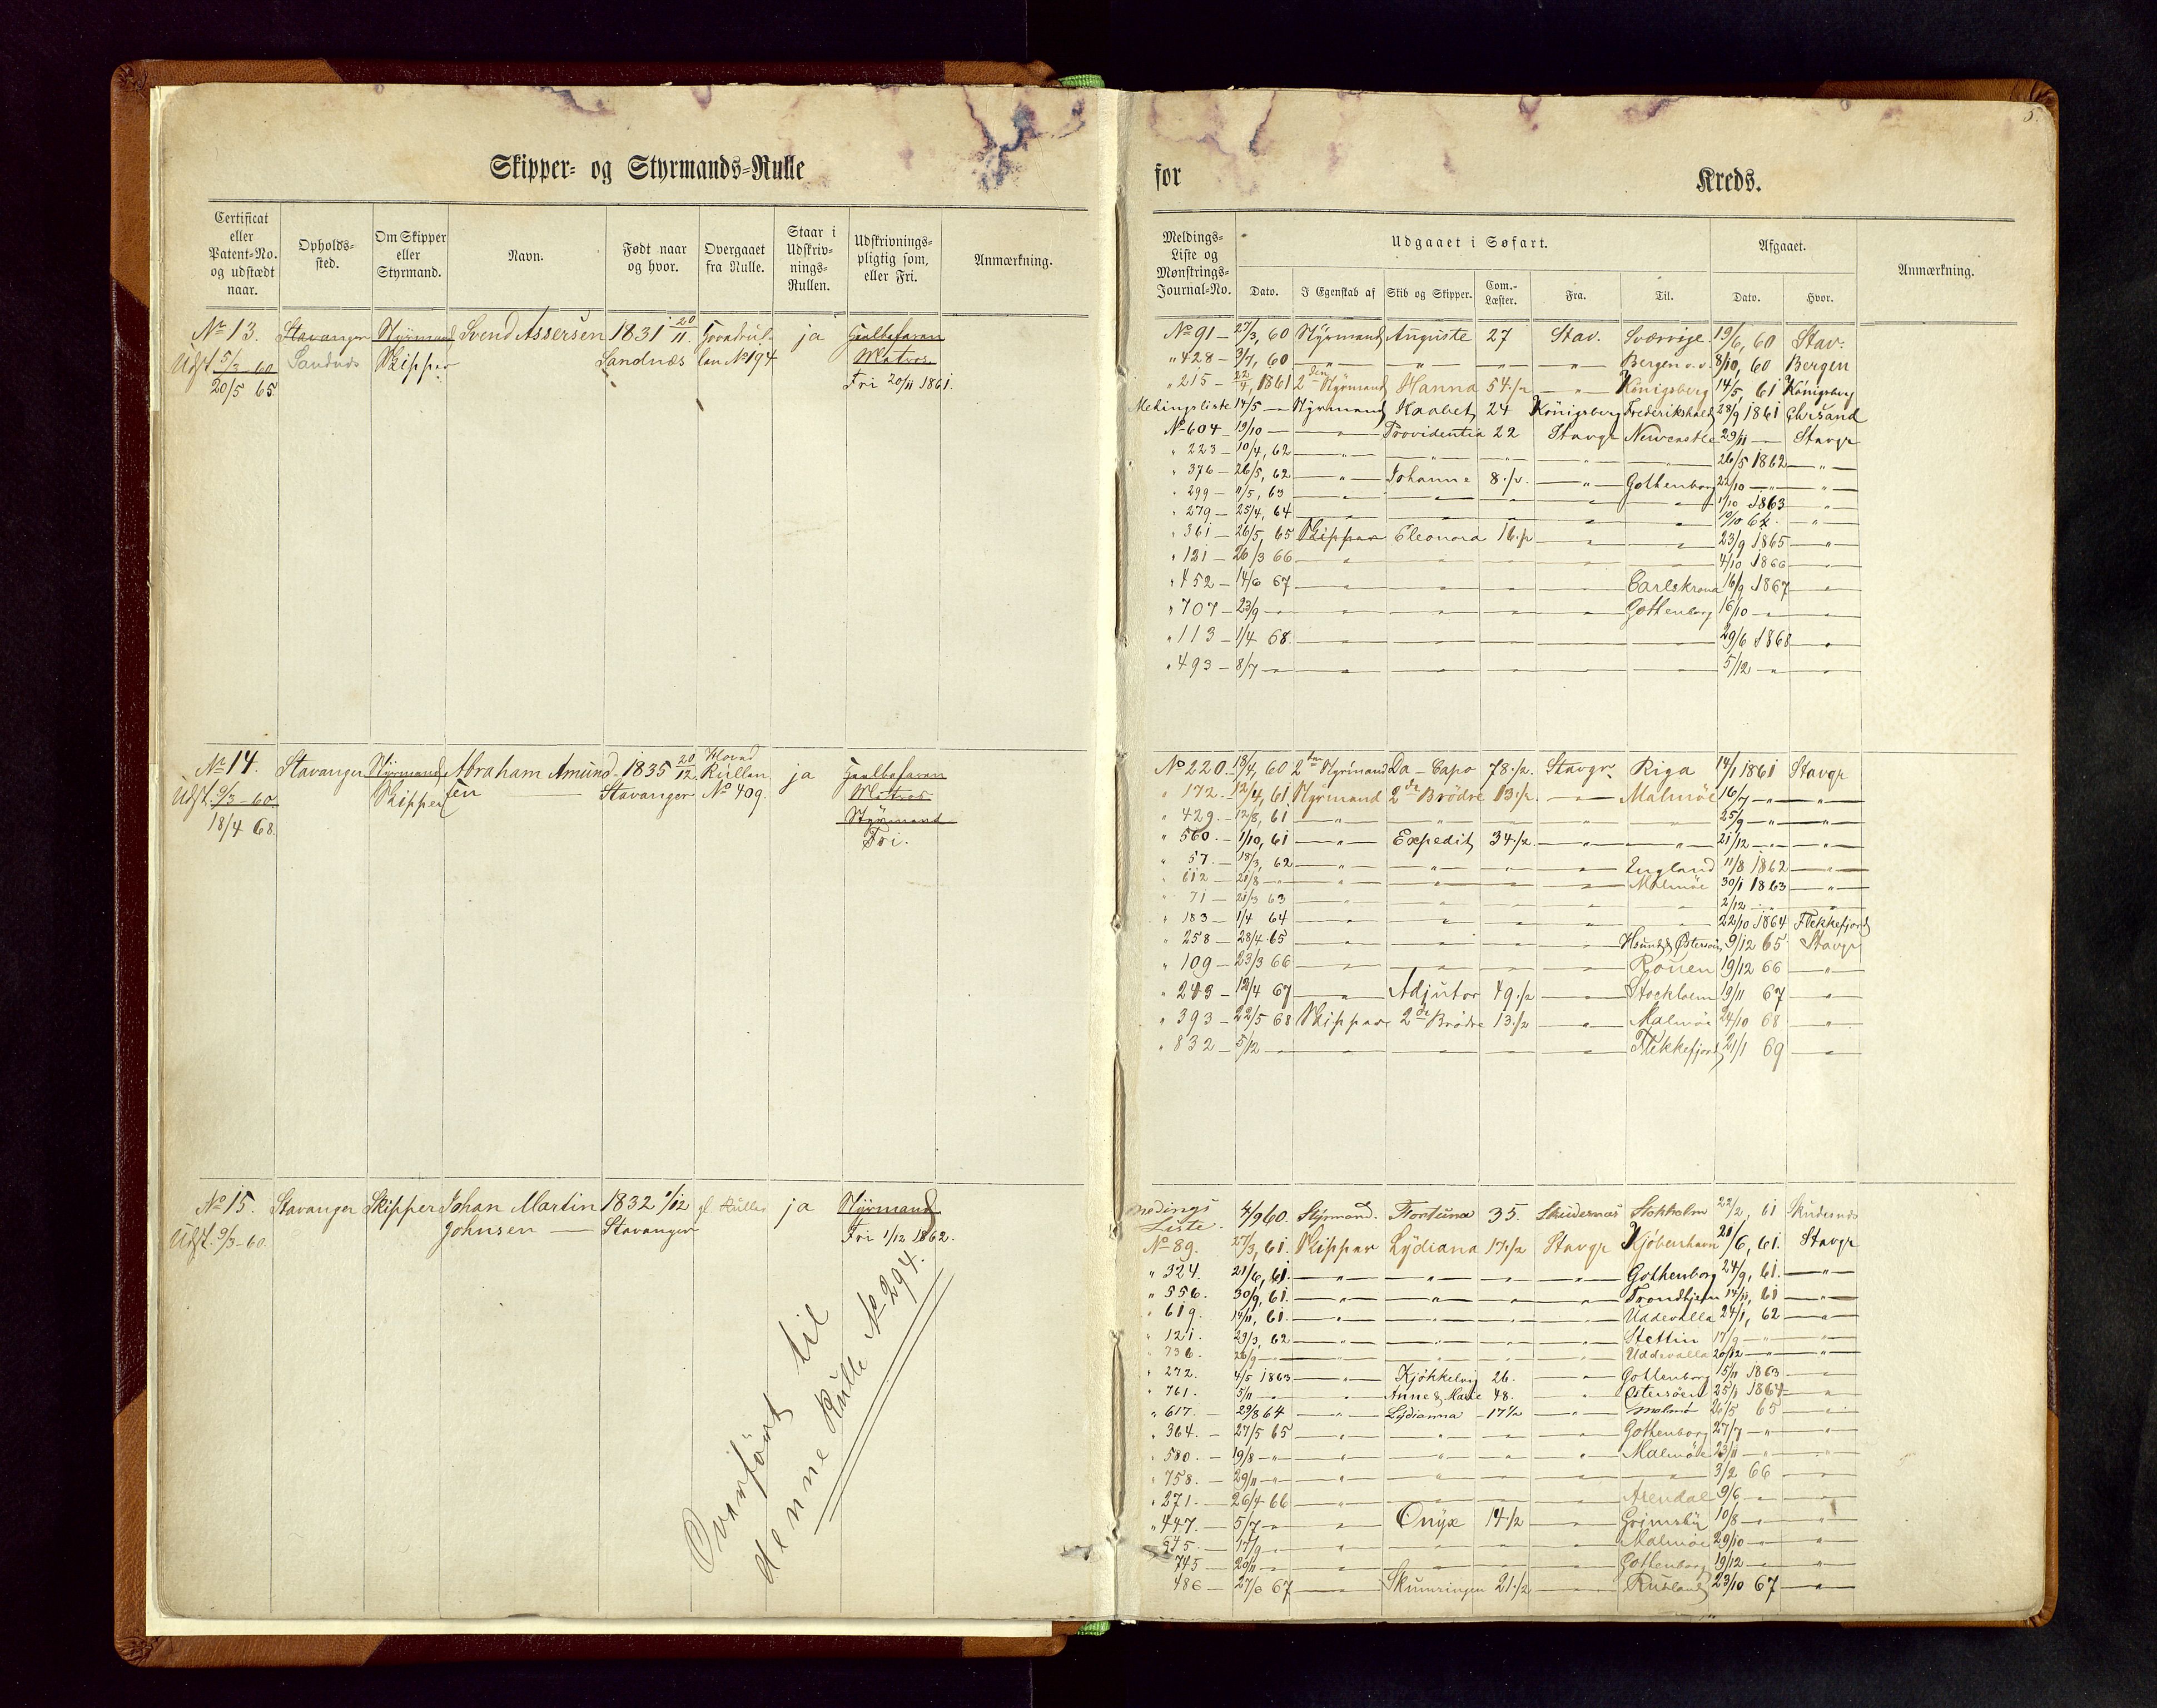 Skipper- og Styrmands-Rulle
Certificat eller Patent-No. og udstædt naar.
Opholds-sted.
Om Skipper eller Styrmand.
Navn.
Født naar og hvor.
Overgaaet fra Rulle.
Staar i Udskriv-nings-Rullen.
Udskrivnings-pligtig som, eller Fri.
Anmærkning.
No 13. Stavanger Styrmand Svend Assersen 1831 20/11 ja
Udst. 5/3 60 Sandnæs Skipper Sandnæs No 194 Matros
20/5 65 Fri 20/11 1861.
No 14. Stavanger Styrmand Abraham Amund- 1835 20/12 Hoved Rullen ja
Udst. 9/3-60 Skipper sen Stavanger No 409. Matros
18/4 68 Styrmand
Fri.
No 15. Stavanger Skipper Johan Martin 1832 1/12 gl. Rulle ja Styrmand
Udst. 9/3-60. Johnsen Stavanger Fri 1/12 1862.
Overført til
denne Rulle No 294.
5.
for Kreds.
Meldings-Liste og Mønstrings-Journal-No.
Udgaaet i Søfart.
Afgaaet.
Anmærkning.
Dato. I Egenskab af Skib og Skipper. Com.-Læster. Fra. Til. Dato. Hvor.
No 91 - 27/3, 60 Styrmand Auguste 27 Stav. Sverrige 19/6, 60 Stav.
" 428 - 3/7, 60 — " — " — " — " Bergen 8/10, 60 Bergen
" 215 - 22/4, 1861 2den Styrmand Hanna 54 1/2 — " — Königsberg 14/5, 61 Königsberg
Meldingsliste 14/5 — Styrmand Haabet 24 Königsberg Frederikshald 28/9 1861 Chrsand
No 604 - 19/10 — — " — Providentia 22 Stavgr Newcastle 29/11 — Stavgr
" 223 - 10/4, 62 — " — " — " — " — 26/5 1862 — " —
" 376 - 26/5, 62 — " — Johanne 8 1/2 — " — Gothenborg 22/10 — " — " —
" 299 - 11/5, 63 — " — " — " — " — 1/10 1863 — " —
" 279 - 25/4, 64 — " — " — " — " — 19/10 64 — " —
" 361 - 26/5, 65 Skipper Eleonora 16 1/2 — " — " — 23/9 1865 — " —
" 121 - 26/3 66 — " — " — " — " — 4/10 1866 — " —
" 452 - 14/6 67 — " — " — " — " — Carlskrona 16/9 1867 — " —
" 707 - 23/9 — " — " — " — " — Gothenborg 16/10 — " — " —
" 113 - 1/4 68. — " — " — " — " — 29/6 1868 — " —
" 493 - 8/7 — " — " — " — " — 5/12 — " — " —
No 220 - 13/4, 60 2den Styrmand Da-Capo 78 1/2 Stavgr Riga 14/1 1861 Stavgr
" 172 - 12/4, 61 Styrmand 2de Brödre 13 1/2 — " — Malmöe 16/7 — " — " —
" 429 - 12/8, 61 — " — " — " — " — 25/9 — " — " —
" 560 - 1/10, 61 — " — Expedit 34 1/2 — " — " — 21/12 — " — " —
" 57 - 18/3, 62 — " — " — " — " — England 11/8 1862 — " —
" 612 - 21/8 — " — " — " — " — Malmöe 30/1 1863 — " —
" 71 - 21/3 63 — " — " — " — " — 2/12 — " — " —
" 183 - 1/4 64 — " — " — " — " — 22/10 1864 Flekkefjord
" 258 - 28/4 65 — " — " — " — " — 9/12 65 Stavgr
" 109 - 23/3 66 — " — " — " — " — Rouen 19/12 66 — " —
" 243 - 12/4 67 — " — Adjutor 49 1/2 — " — Stockholm 19/11 67 — " —
" 393 - 22/5 68 Skipper 2de Brödre 13 1/2 — " — Malmöe 24/10 68 — " —
" 832 - 5/12 — " — " — " — " — Flekkefjord 21/1 69 — " —
Meldings Liste. 4/9 60. Styrmand. Fortuna 35. Skudernæs Stokholm 22/2, 61 Skudernæs
No 89. 27/3, 61. Skipper Lydiana 17 1/2 Stavgr Kjöbenhavn 21/6, 61. Stavgr
" 324. 21/6, 61. — " — " — " — " — Gothenborg 24/9, 61. — " —
" 556. 30/9, 61. — " — " — " — " — Trondhjem 14/11, 61 — " —
" 619. 14/11, 61. — " — " — " — " — Uddevalla 24/1, 62 — " —
" 121. 29/3, 62 — " — " — " — " — Stettin 17/9 — " — " —
" 736. 26/9 — " — " — " — " — Uddevalla 20/12 — " — " —
" 272. 4/5 1863 — " — Kjökkelvig 26. — " — Gothenborg 15/11 1863 — " —
" 761. 5/11 — " — Anne & Marie 48. — " — Østersøen 25/1 1864 — " —
" 617. - 29/8 64 — " — Lydianna - 17 1/2 — " — Malmö 26/5 65 — " —
" 364. - 27/5 65 — " — " — " — " — Gothenborg 27/7 — " — " —
" 580. - 19/8 — " — " — " — " — Malmöe 23/11 — " — " —
" 758. - 29/11 — " — " — " — " — 3/2 66 — " —
" 271. - 26/4 66 — " — " — " — " — Arendal 9/6 — " — " —
" 447. - 5/7 — " — Onyx 14 1/2 — " — Grimsby 10/8 — " — " —
545. - 17/9 — " — " — " — " — Malmöe 29/10 — " — " —
745 - 20/11 — " — " — " — " — Gothenborg 19/12 — " — " —
486 - 27/6 67 — " — Skumringen 21 1/2 — " — Rusland 23/10 67 — " —